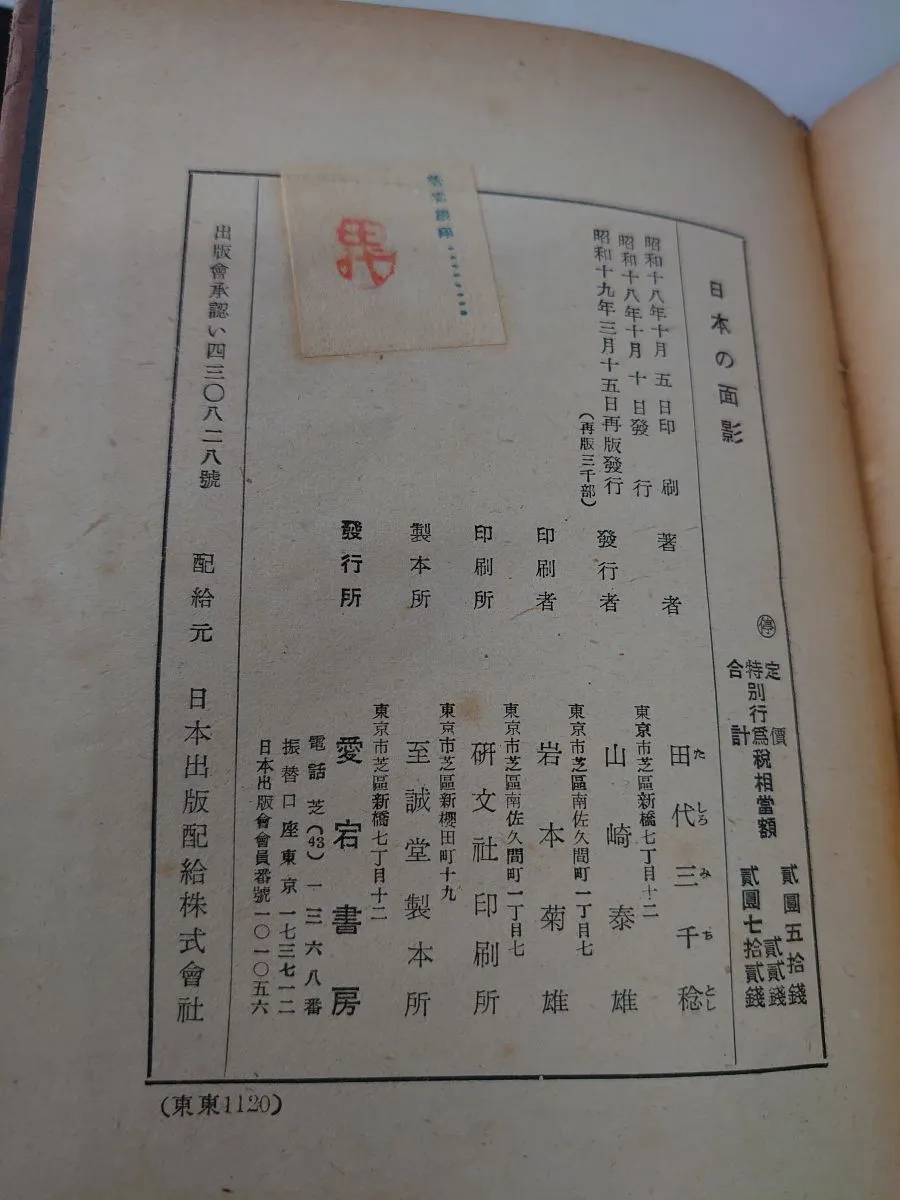 日本の面影
昭和十八年十月五日印刷
昭和十八年十月十日發行
昭和十九年三月十五日再版發行
(再版三千部)
停
定價 貳圓五拾錢
特別行爲税相當額 貳貳錢
合計 貳圓七拾貳錢
著者 田代三千稔
たしろみちとし
發行者 東京市芝區新橋七丁目十二
山崎泰雄
印刷者 東京市芝區南佐久間町一丁目七
岩本菊雄
印刷所 東京市芝區南佐久間町一丁目七
研文社印刷所
製本所 東京市芝區新櫻田町十九
至誠堂製本所
發行所 東京市芝區新橋七丁目十二
愛宕書房
電話芝(43)一三六八番
振替口座東京一七三七一二
日本出版會會員番號一〇一〇五六
田代
出版會承認い四三〇八二八號
配給元 日本出版配給株式會社
(東東1120)